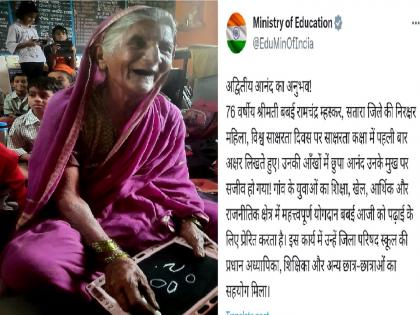 Ministry of Education
@EduMinOfIndia
अद्वितीय आनंद का अनुभव!
76 वर्षीय श्रीमती बबई रामचंद्र म्हस्कर, सतारा जिले की निरक्षर
महिला, विश्व साक्षरता दिवस पर साक्षरता कक्षा में पहली बार
अक्षर लिखते हुए। उनकी आँखों में छुपा आनंद उनके मुख पर
सजीव हो गया! गांव के युवाओं का शिक्षा, खेल, आर्थिक और
राजनीतिक क्षेत्र में महत्त्वपूर्ण योगदान बबई आजी को पढ़ाई के
लिए प्रेरित करता है। इस कार्य में उन्हें जिला परिषद स्कूल की
प्रधान अध्यापिका, शिक्षिका और अन्य छात्र-छात्राओं का
सहयोग मिला।